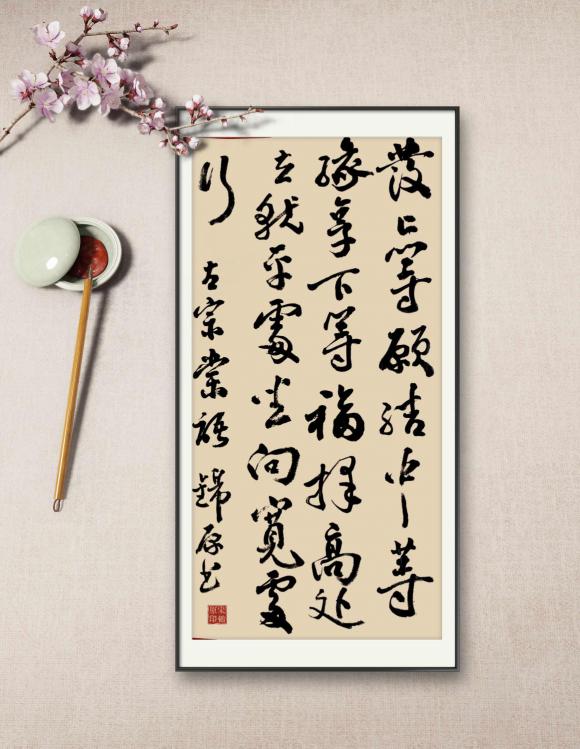 發上等願結中等
緣享下等福择高处
立就平處坐向寬處
行 左宗棠語 錦原书